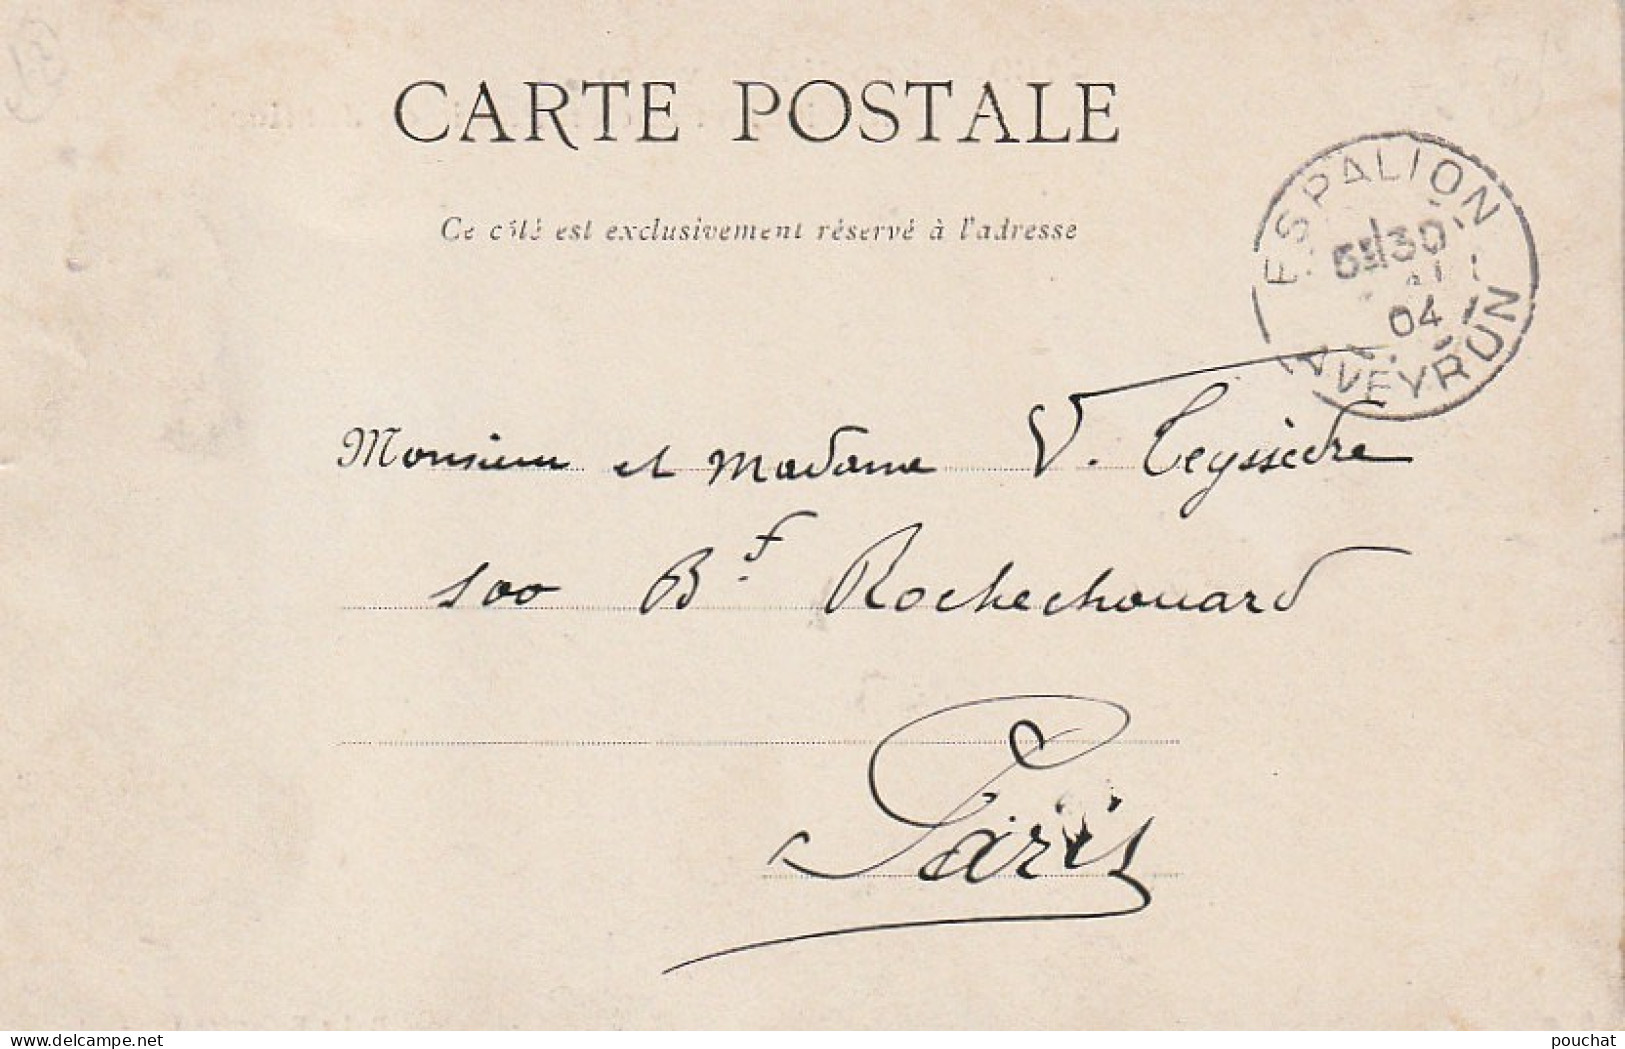 CARTE POSTALE
Ce côté est exclusivement réservé à l'adresse
ESPALION
5E/30
04
AVEYRON
Monsieur et Madame V. Teyssèdre
100 Bd. Rochechouard
Paris
delcampe.net
pouchat